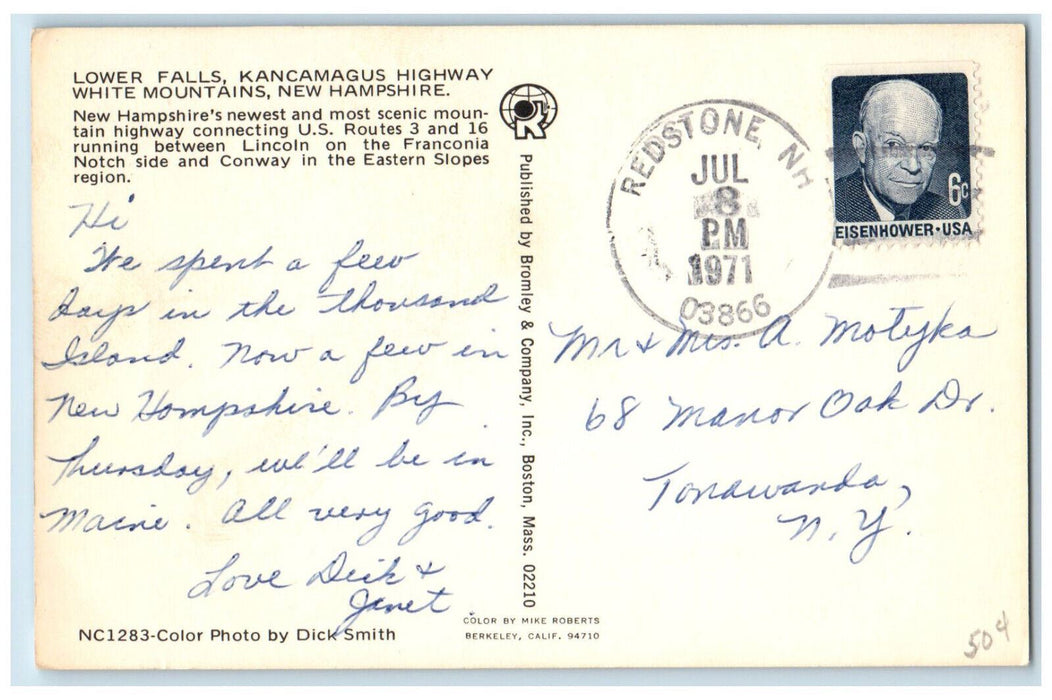 LOWER FALLS, KANCAMAGUS HIGHWAY
WHITE MOUNTAINS, NEW HAMPSHIRE.
New Hampshire's newest and most scenic moun-
tain highway connecting U.S. Routes 3 and 16
running between Lincoln on the Franconia
Notch side and Conway in the Eastern Slopes
region.
Hi
We spent a few
days in the thousand
Island. Now a few in
New Hampshire. By
Thursday, we'll be in
Maine. All very good.
Love Dick +
Janet
NC1283-Color Photo by Dick Smith
Published by Bromley & Company, Inc., Boston, Mass. 02210
COLOR BY MIKE ROBERTS
BERKELEY, CALIF. 94710
REDSTONE, NH
JUL
8
PM
1971
03866
6c
EISENHOWER·USA
Mr + Mrs. A. Motyka
68 Manor Oak Dr.
Tonawanda,
N.Y.
50¢